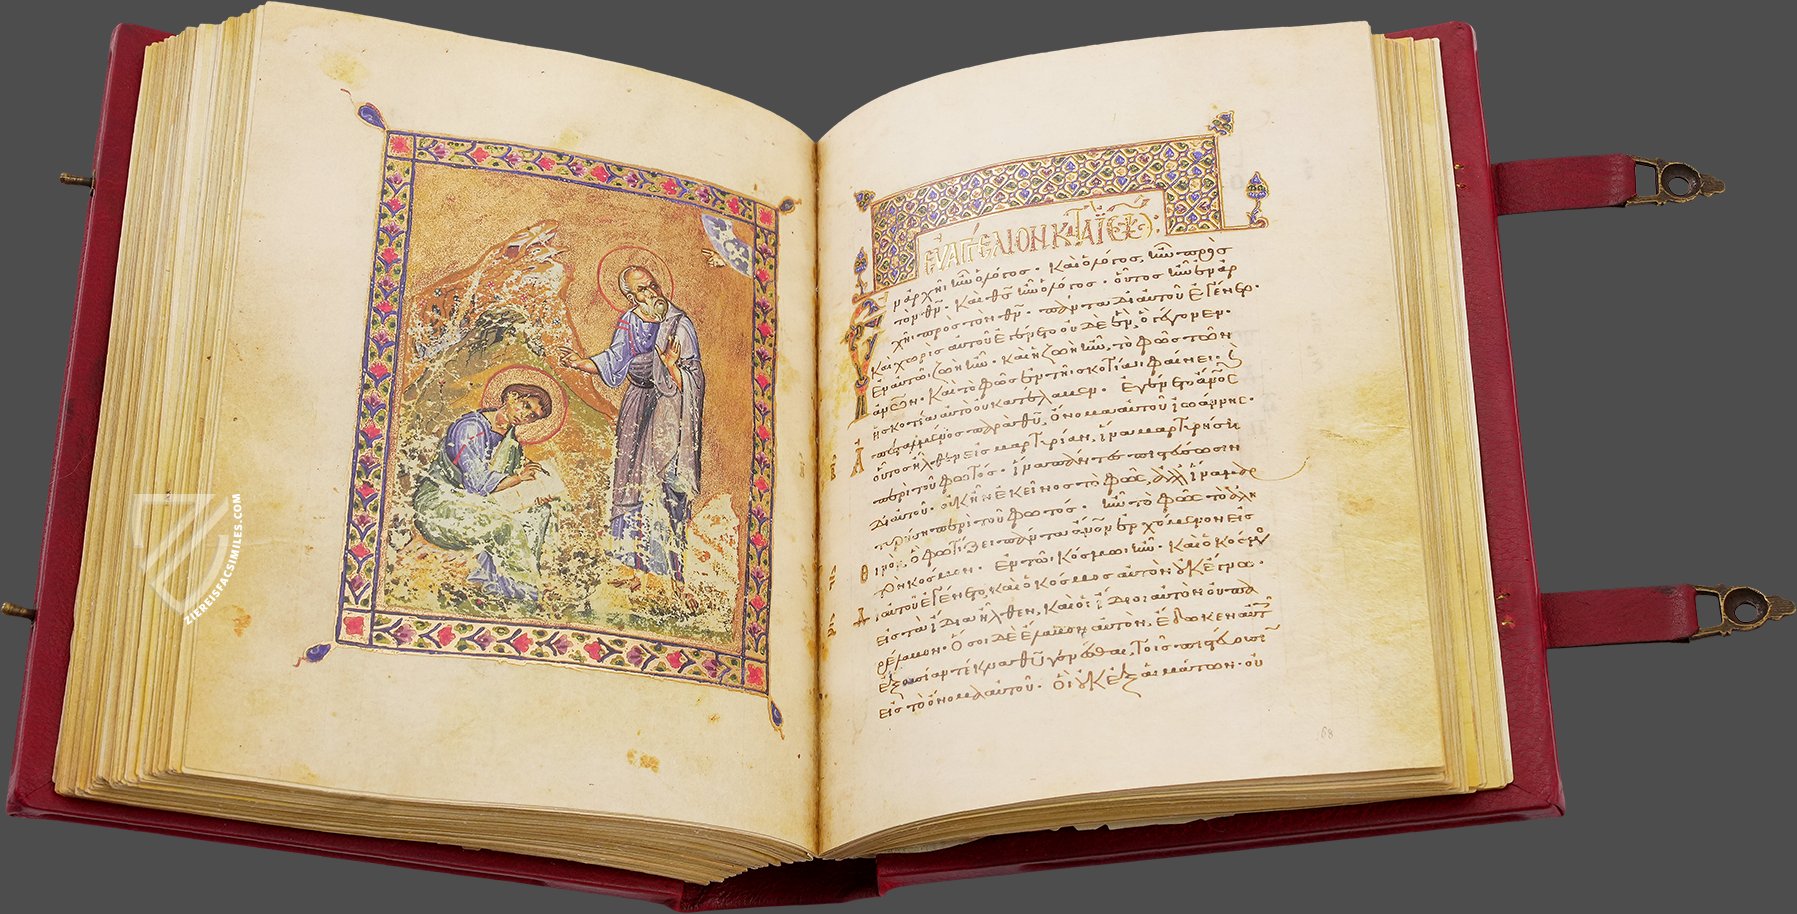 ZIEREISFACSIMILES.COM
ΕΥΑΓΓΕΛΙΟΝ Κ ΙΩ
Ἐν ἀρχῆι ἦν ὁ λόγος· Καὶ ὁ λόγος, ἦν πρὸς
τὸν θν· Καὶ θς ἦν ὁ λόγος· οὗτος ἦν ἐν ἀρ
χῆι πρὸς τὸν θν· πάντα δι αὐτοῦ ἐγένετο·
Καὶ χωρὶς αὐτοῦ ἐγένετο οὐδὲ ἓν, ὃ γέγονεν·
ἐν αὐτῶι ζωὴ ἦν· Καὶ ἡ ζωὴ ἦν, τὸ φῶς τῶν
ανων· Καὶ τὸ φῶς ἐν τῆι σκοτίαι φαίνει· Καὶ
ἡ σκοτία αὐτὸ οὐ κατέλαβεν· Ἐγένετο ανος
ἀπεσταλμένος παρὰ θυ, ὄνομα αὐτοῦ ἰωάννης·
οὗτος ἦλθεν εἰς μαρτυρίαν, ἵνα μαρτυρήση
περὶ τοῦ φωτός· ἵνα πάντες πιστεύσωσιν
δι αὐτοῦ· οὐκ ἦν ἐκεῖνος τὸ φῶς, ἀλλ ἵνα μαρ
τυρήση περὶ τοῦ φωτός· ἦν τὸ φῶς τὸ ἀλη
θινὸν· ὃ φωτίζει πάντα ανον ἐρχόμενον εἰς
τὸν κόσμον· ἐν τῶι κόσμωι ἦν· Καὶ ὁ κόσμος
δι αὐτοῦ ἐγένετο, Καὶ ὁ κόσμος αὐτὸν οὐκ ἔγνω·
εἰς τὰ ἴδια ἦλθεν, Καὶ οἱ ἴδιοι αὐτὸν οὐ παρ
έλαβον· Ὅσοι δὲ ἔλαβον αὐτὸν, ἔδωκεν αὐτοῖς
ἐξουσίαν τέκνα θυ γενέσθαι, τοῖς πιστεύουσιν
εἰς τὸ ὄνομα αὐτοῦ· Οἳ οὐκ ἐξ αἱμάτων· οὐ
68